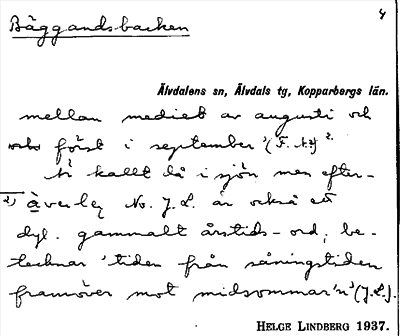 4
Bäggandsbacken
Älvdalens sn, Älvdals tg, Kopparbergs län.
mellan mediet av augusti och
först i september' (F. ) 2.
kallt då i sjön men efter-
2) åverley No. J.L. är också ett
dyl. gammalt årstids-ord, be-
tecknar 'tiden från såningstiden
framöver mot midsommar'n' (J.L.).
HELGE LINDBERG 1937.